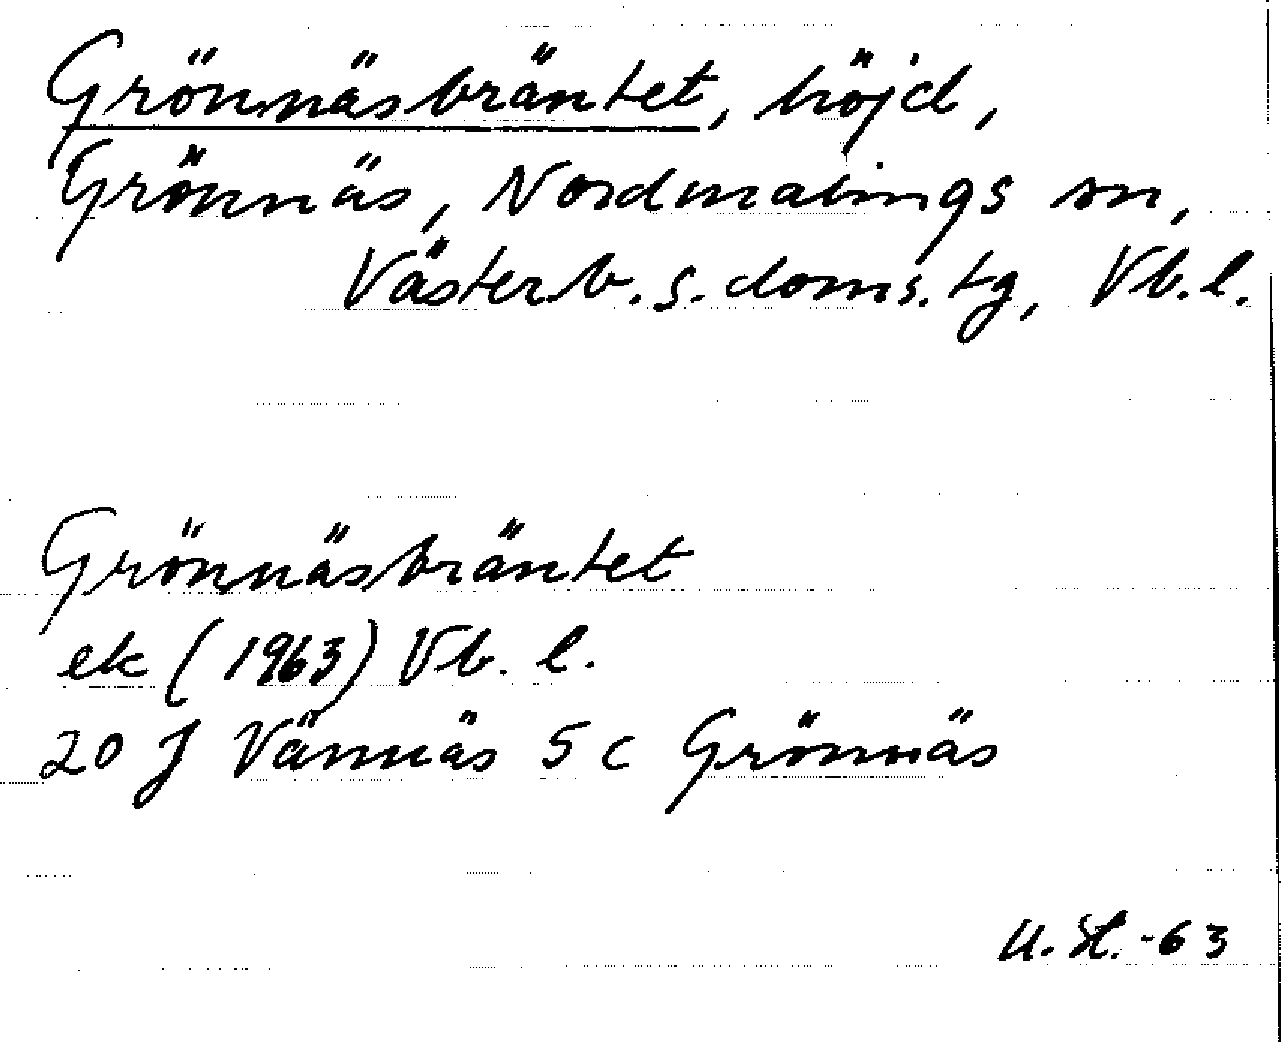 Grönnäsbräntet, höjd,
Grönnäs, Nordmalings sn,
Västerb. s. doms. tg, Vb. l.
Grönnäsbräntet
ek (1963) Vb. l.
20 J Vännäs 5 c Grönnäs
U. H. -63